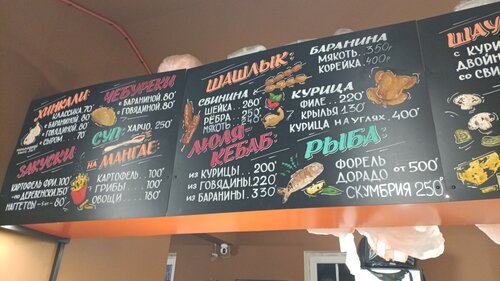 ХИНКАЛИ
КЛАССИКА. 70'
с БАРАНИНОЙ 80'
с ГОВЯДИНОЙ 80'
с СЫРОМ
ЗАКУСКИ
КАРТОФЕЛЬ ФРИ. 100'
НАГГЕТСЫ
ЧЕБУРЕКИ
с БАРАНИНОЙ 80'
с ГОВЯДИНОЙ 80'
СУП: ХАРЧО. 250'
на МАНГАЛЕ
КАРТОФЕЛЬ. . 100'
ГРИБЫ . . . 100'
ОВОЩИ . . . 180'
ШАШЛЫК:
СВИНИНА
ШЕЙКА.. 260'
РЕБРА ..
МЯКОТЬ
ЛЮЛЯ-
КЕБАБ
из КУРИЦЫ.. 200'
из ГОВЯДИНЫ. 220'
из БАРАНИНЫ. 330
БАРАНИНА
МЯКОТЬ.. 350г
КОРЕЙКА.. 400г
КУРИЦА
ФИЛЕ .. 220'
КРЫЛЬЯ 130'
КУРИЦА НА УГЛЯХ. 400'
РЫБА
ФОРЕЛЬ
ДОРАДО от 500'
СКУМБРИЯ 250'
ШАУ
с КУРИ
ДВОЙН
со СВИ